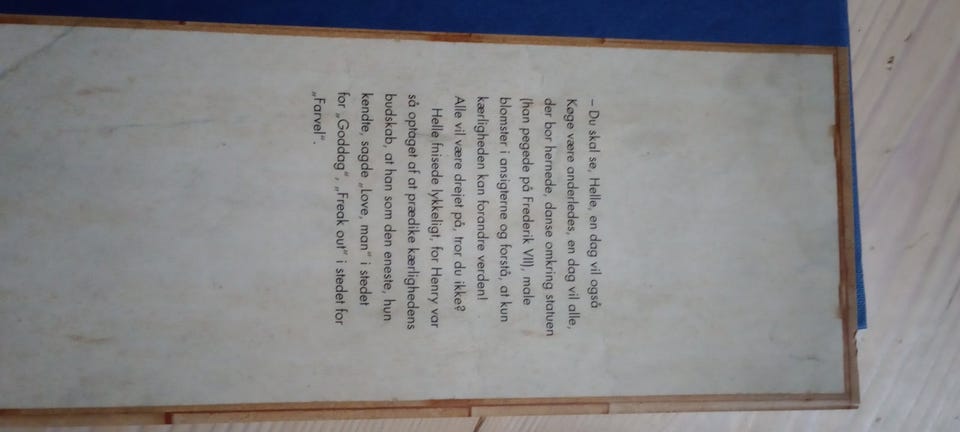 – Du skal se, Helle, en dag vil også
Køge være anderledes, en dag vil alle,
der bor hernede, danse omkring statuen
(han pegede på Frederik VII), male
blomster i ansigterne og forstå, at kun
kærligheden kan forandre verden!
Alle vil være drejet på, tror du ikke?
Helle fnisede lykkeligt, for Henry var
så optaget af at prædike kærlighedens
budskab, at han som den eneste, hun
kendte, sagde „Love, man“ i stedet
for „Goddag“, „Freak out“ i stedet for
„Farvel“.